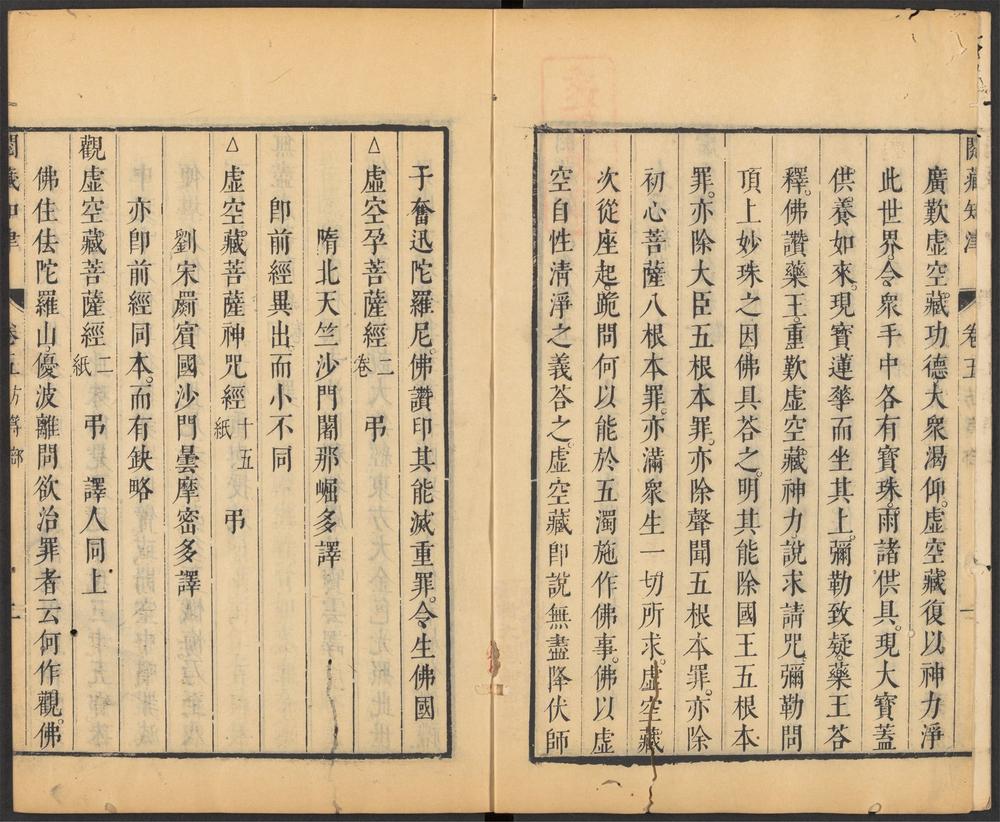 閱藏知津 卷五
廣歎虛空藏功德大衆渴仰。虛空藏復以神力淨
此世界。令衆手中各有寶珠。雨諸供具。現大寶蓋
供養如來。現寶蓮華而坐其上。彌勒致疑。藥王荅
釋。佛讚藥王。重歎虛空藏神力。說求請咒。彌勒問
頂上妙珠之因。佛具荅之。明其能除國王五根本
罪。亦除大臣五根本罪。亦除聲聞五根本罪。亦除
初心菩薩八根本罪。亦滿衆生一切所求。虛空藏
次從座起。跪問何以能於五濁施作佛事。佛以虛
空自性清淨之義荅之。虛空藏卽說無盡降伏師
于奮迅陀羅尼。佛讚印其能滅重罪。令生佛國
△虛空孕菩薩經二卷 弔
隋北天竺沙門闍那崛多譯
卽前經異出。而小不同
△虛空藏菩薩神咒經十五紙 弔
劉宋罽賓國沙門曇摩密多譯
亦卽前經同本。而有缺略
觀虛空藏菩薩經二紙 弔 譯人同上
佛住佉陀羅山。優波離問欲治罪者云何作觀。佛
閱藏知津 卷五 方等部 二